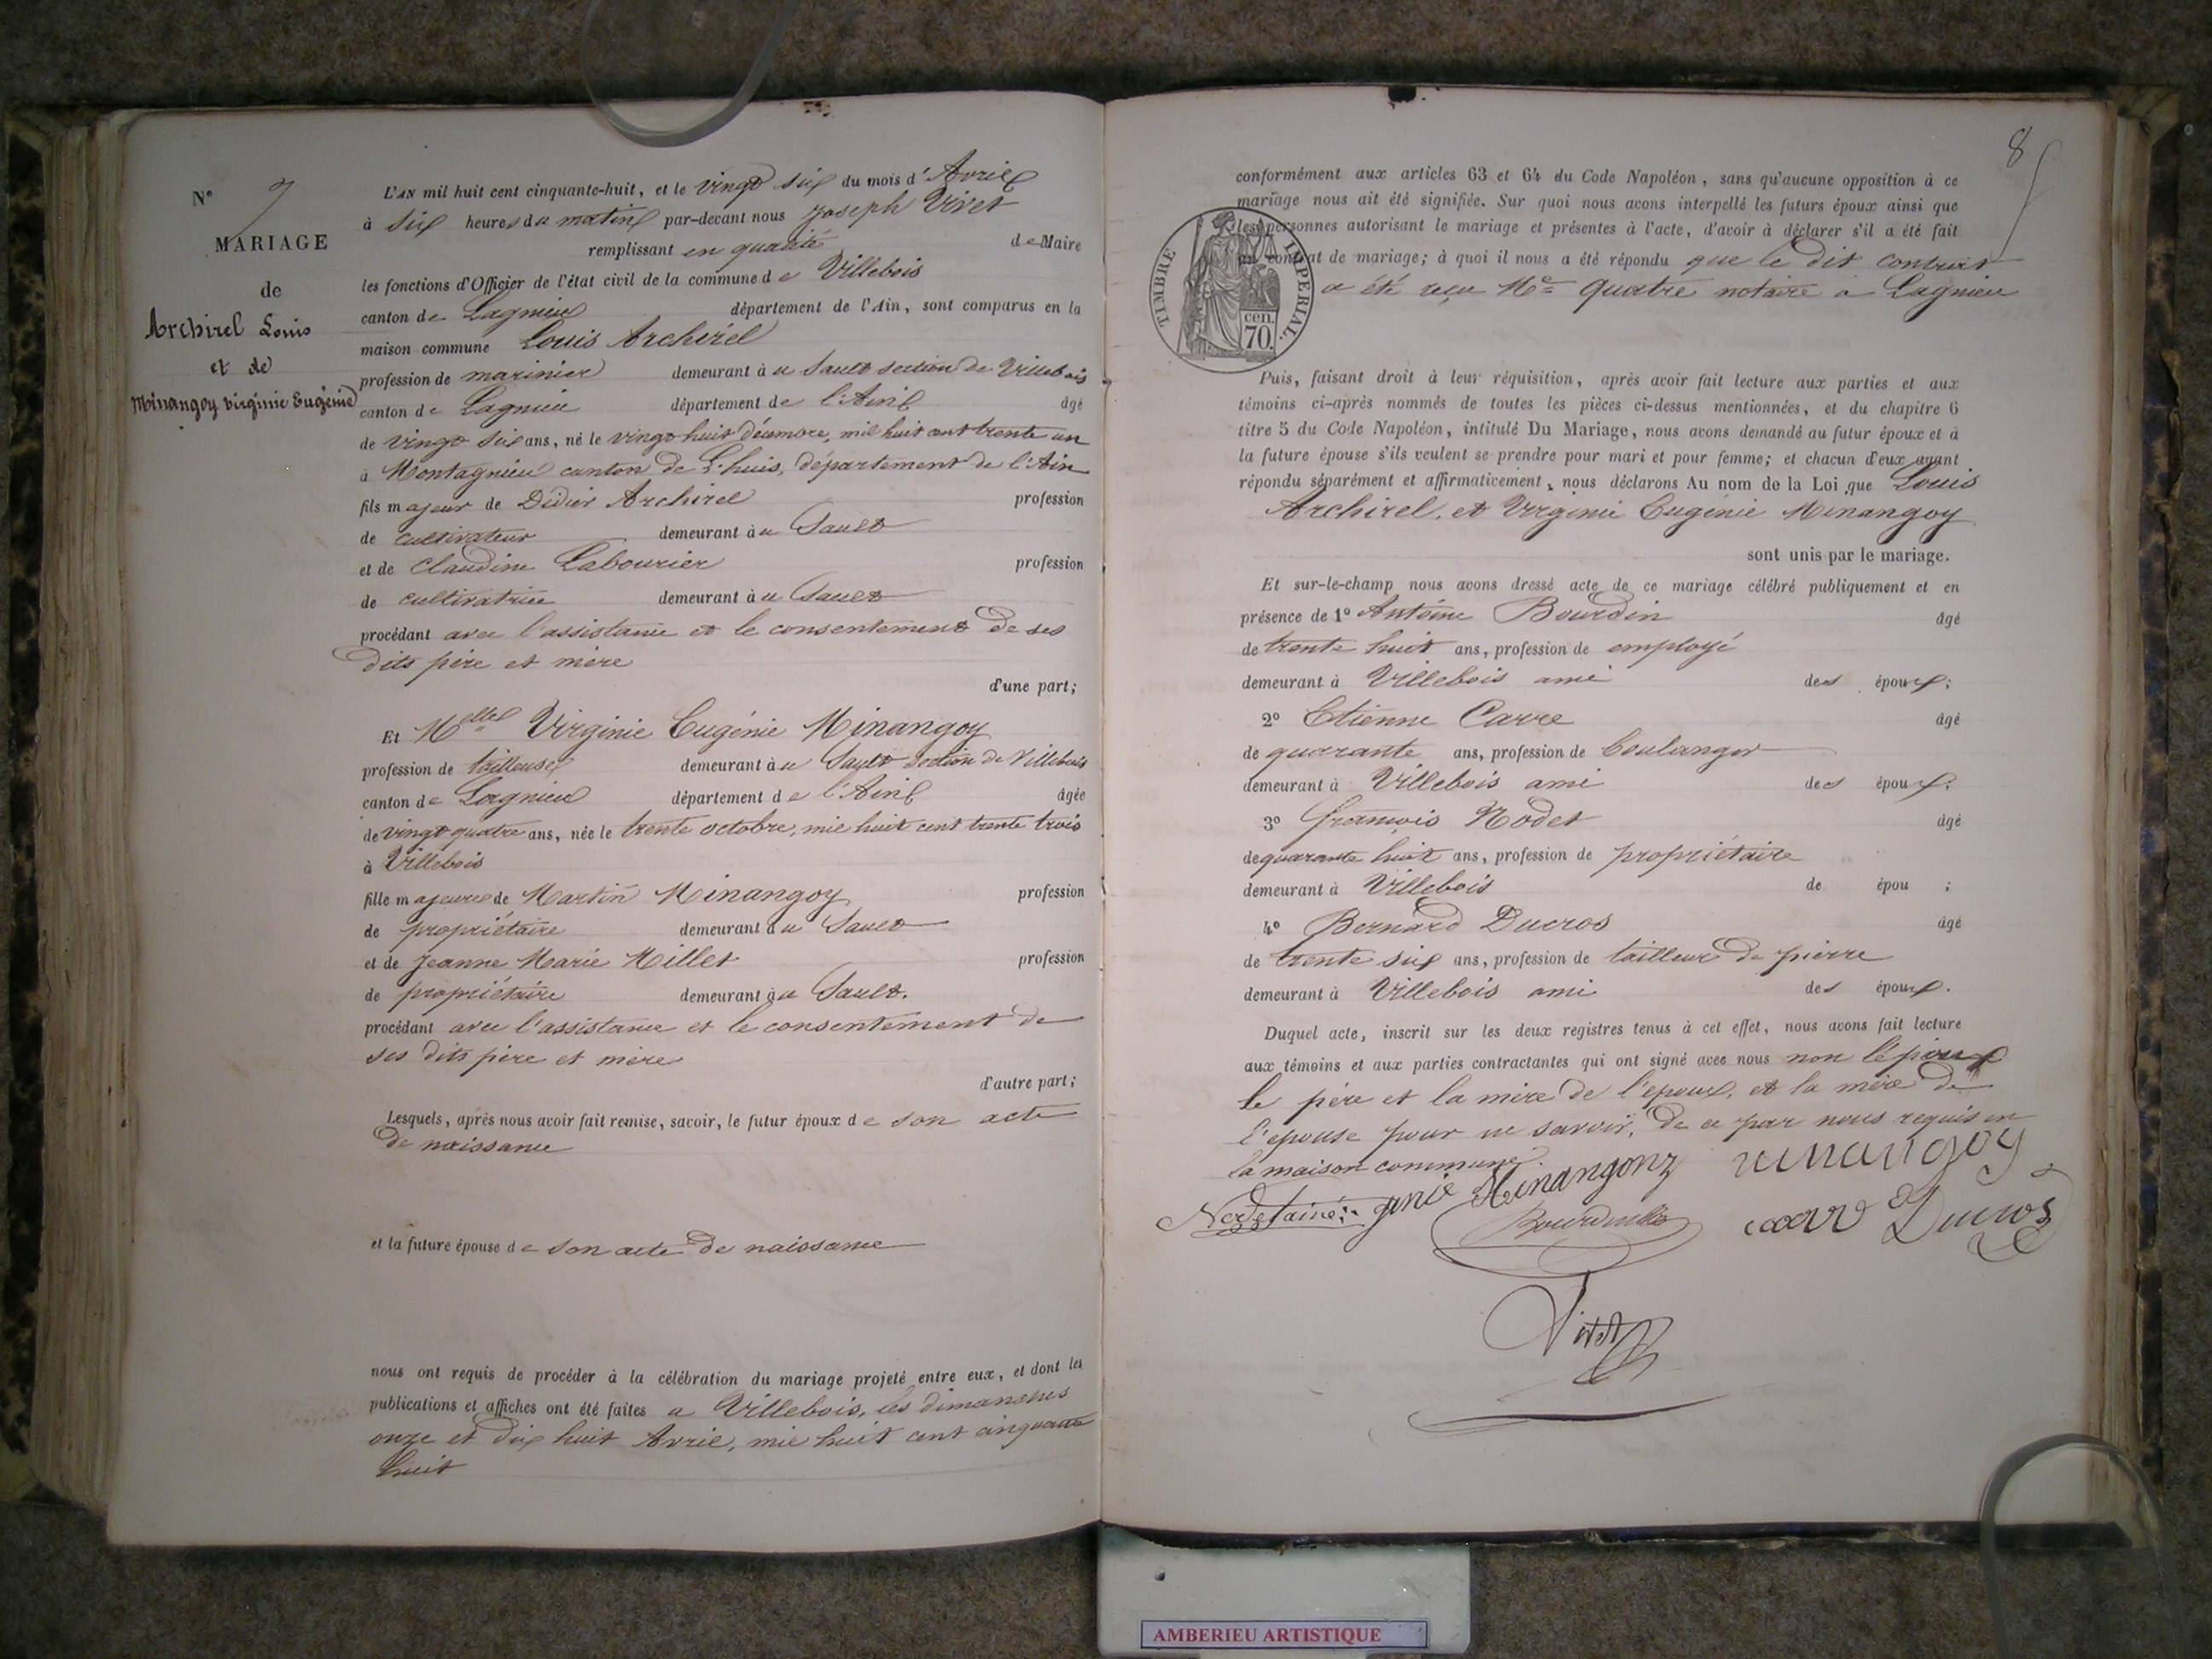 N° 7
MARIAGE
de
Archirel Louis
et de
Minangoy Virginie Eugénie
L'AN mil huit cent cinquante-huit, et le vingt six du mois d'Avril
à six heures du matin par-devant nous Joseph Vivet
remplissant en qualité de Maire
les fonctions d'Officier de l'état civil de la commune de Villebois
canton de Lagnieu département de l'Ain, sont comparus en la
maison commune Louis Archirel
profession de marinier demeurant à u Sault section de Villebois
canton de Lagnieu département de l'Ain âgé
de vingt six ans, né le vingt huit décembre, mil huit cent trente un
à Montagnieu canton de L'huis, département de l'Ain
fils majeur de Didier Archirel profession
de cultivateur demeurant à u Sault
et de Claudine Labourier profession
de cultivatrice demeurant à u Sault
procédant avec l'assistance et le consentement de ses
dits père et mère
d'une part;
Et Melle Virginie Eugénie Minangoy
profession de tailleuse demeurant à u Sault section de Villebois
canton de Lagnieu département de l'Ain âgée
de vingt quatre ans, née le trente octobre, mil huit cent trente trois
à Villebois
fille majeure de Martin Minangoy profession
de propriétaire demeurant à u Sault
et de Jeanne Marie Millet profession
de propriétaire demeurant à u Sault.
procédant avec l'assistance et le consentement de
ses dits père et mère
d'autre part;
Lesquels, après nous avoir fait remise, savoir, le futur époux de son acte
de naissance
et la future épouse de son acte de naissance
nous ont requis de procéder à la célébration du mariage projeté entre eux, et dont les
publications et affiches ont été faites a Villebois, les dimanches
onze et dix huit Avril, mil huit cent cinquante
huit
8
conformément aux articles 63 et 64 du Code Napoléon, sans qu'aucune opposition à ce
mariage nous ait été signifiée. Sur quoi nous avons interpellé les futurs époux ainsi que
les personnes autorisant le mariage et présentes à l'acte, d'avoir à déclarer s'il a été fait
un contrat de mariage; à quoi il nous a été répondu que le dit contrat
a été reçu Me Quatre notaire a Lagnieu
TIMBRE IMPÉRIAL.
cen.
70.
Puis, faisant droit à leur réquisition, après avoir fait lecture aux parties et aux
témoins ci-après nommés de toutes les pièces ci-dessus mentionnées, et du chapitre 6
titre 5 du Code Napoléon, intitulé Du Mariage, nous avons demandé au futur époux et à
la future épouse s'ils veulent se prendre pour mari et pour femme; et chacun d'eux ayant
répondu séparément et affirmativement, nous déclarons Au nom de la Loi que Louis
Archirel, et Virginie Eugénie Minangoy
sont unis par le mariage.
Et sur-le-champ nous avons dressé acte de ce mariage célébré publiquement et en
présence de 1° Antoine Bourdin âgé
de trente huit ans, profession de employé
demeurant à Villebois ami des époux;
2° Etienne Carre âgé
de quarante ans, profession de boulanger
demeurant à Villebois ami des époux.
3° François Nodet âgé
de quarante huit ans, profession de propriétaire
demeurant à Villebois de épou ;
4° Bernard Ducros âgé
de trente six ans, profession de tailleur de pierre
demeurant à Villebois ami des époux.
Duquel acte, inscrit sur les deux registres tenus à cet effet, nous avons fait lecture
aux témoins et aux parties contractantes qui ont signé avec nous non l'époux
le père et la mère de l'epoux, et la mère de
l'epouse pour ne savoir, de ce par nous requis en
la maison commune.
genie Minangonz minangoy
Nodet Bourdin carre Ducros
Vivet
AMBERIEU ARTISTIQUE